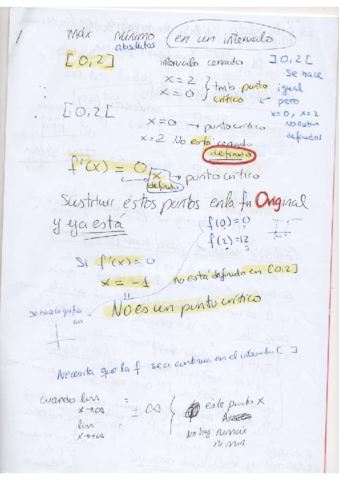 máx mínimo en un intervalo
absolutos
[0,2] intervalo cerrado ]0,2[
x=2
x=0 } tmb punto crítico
Se hace igual pero
x=0, x=2
No están definidos
[0,2[ x=0 → punto crítico
x=2 No está
definido
f'(x) = 0 → punto crítico
x
definido
Sustituir estos puntos en la fn Original
y ya está
f(0)=0
f(2)=12
Si f'(x)=0
x=-1
no está definida en [0,2]
No es un punto crítico
Se hace la gráfica
Necesita que la f sea continua en el intervalo [ ]
cuando lim = ± ∞ { este punto x
x→∞
lim =
x→
No hay ni máx
ni mín